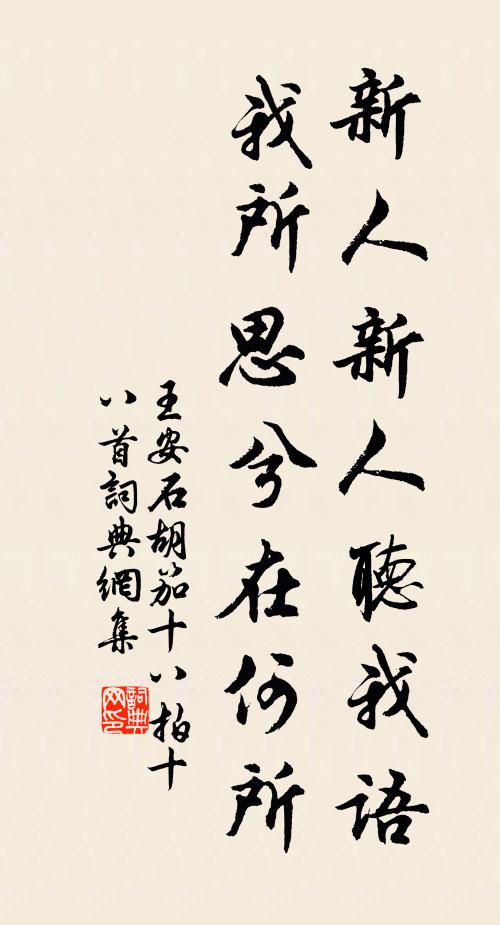 新人新人聽我語
我所思兮在何所
王安石胡笳十八拍十
八首詞典網集
詞典
网印